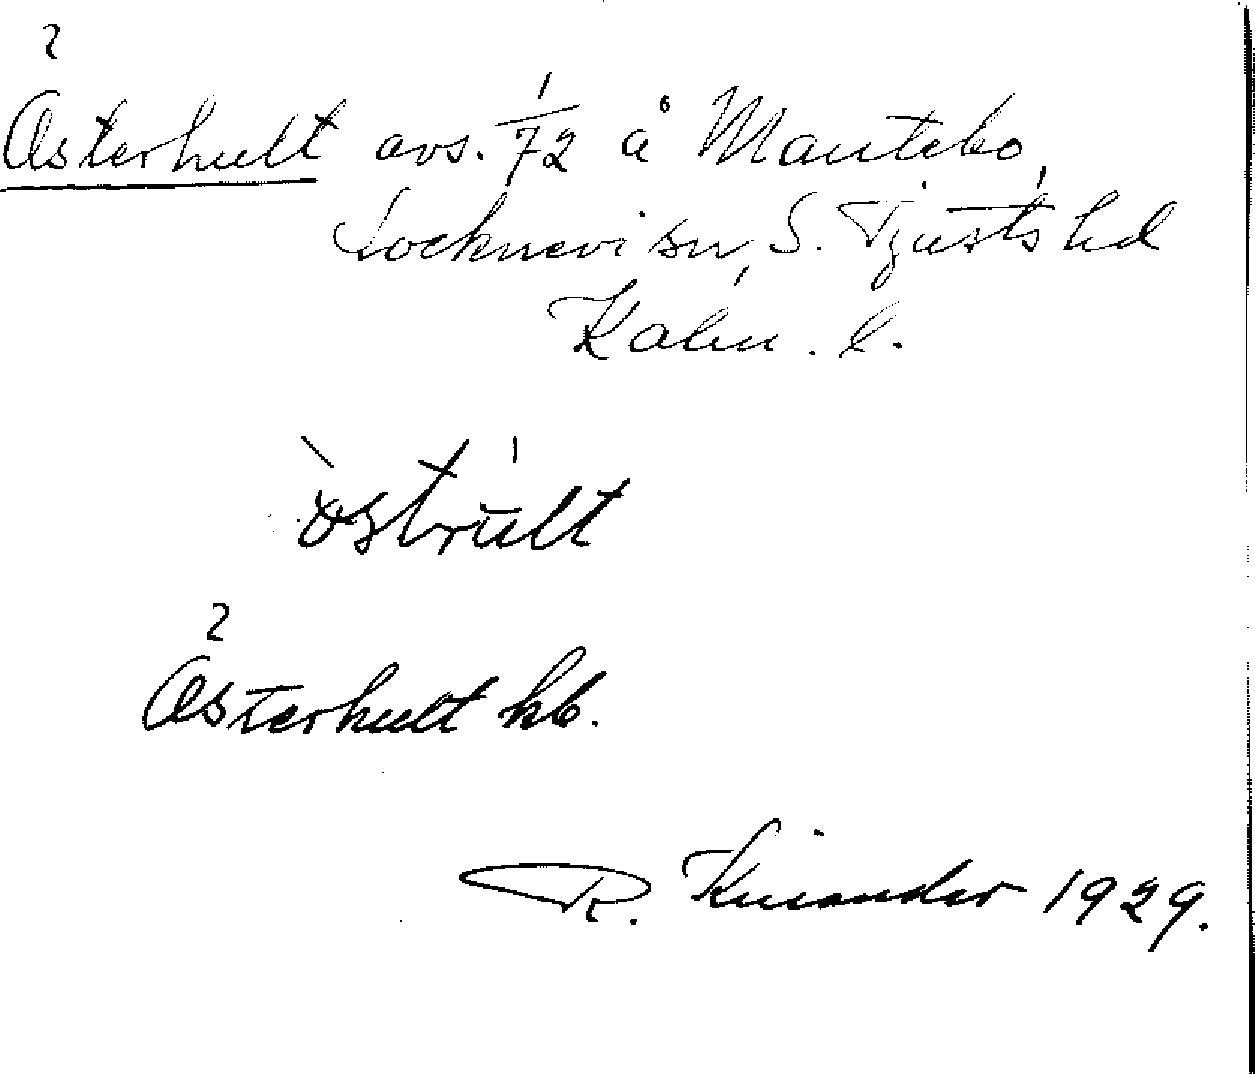 Österhult avs. 1/72 å Mantebo,
Locknevi sn, S. Tjusts hd
Kalm. l.
òstrult
Österhult kb.
R. Kinander 1929.